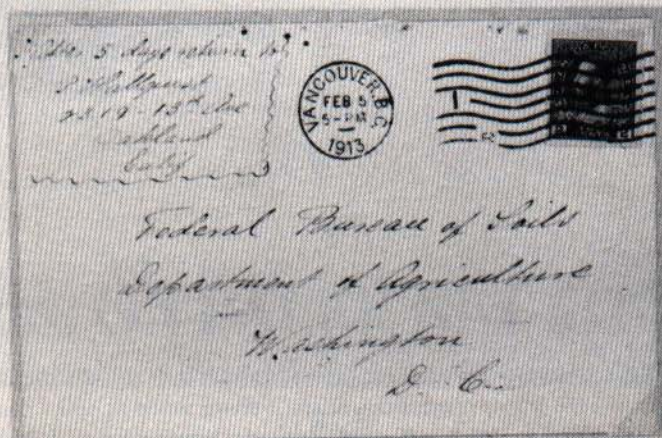 After 5 days return to
2219 - 13th Ave
Oakland
Calif
VANCOUVER, B.C.
FEB 5
5 - PM
1913
Federal Bureau of Soils
Department of Agriculture
Washington
D. C.